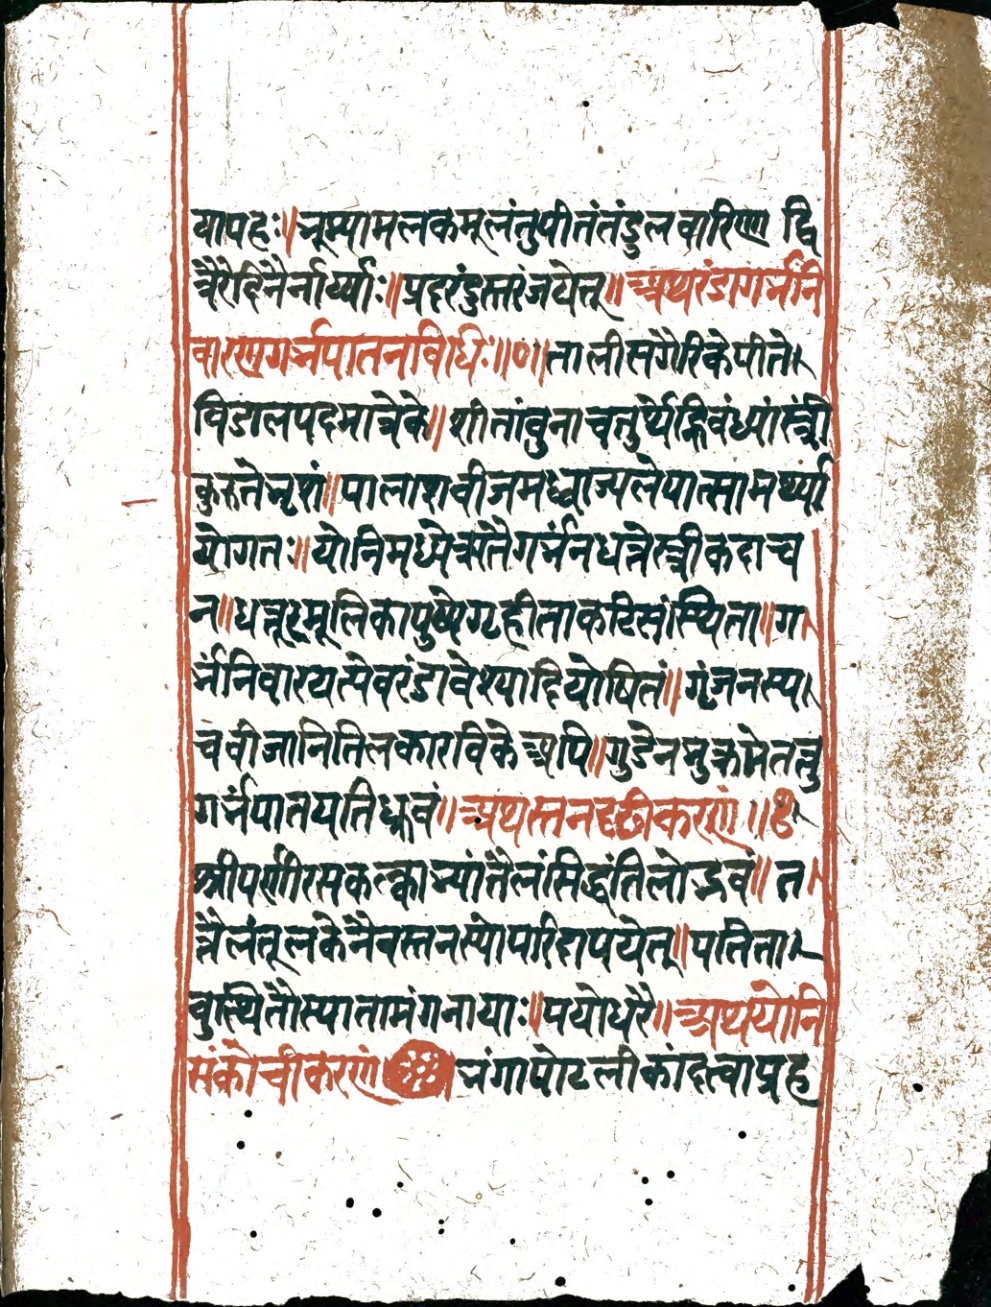 यापहः॥भूम्यामलकमूलंतुपीतंतंडुलवारिणा द्वि
त्रैरेदिनैर्नार्य्याः॥प्रदरंदुस्तरंजयेत्॥अथरंडागर्भनि
वारणगर्भपातनविधिः॥०॥तालीसगैरिकेपीते
विडालपदमात्रेके॥शीतांवुनाचतुर्थेह्निवंध्यांस्त्रीं
कुरुतेभृशं॥पालाशवीजमध्वाज्यलेपात्सामर्थ्या
योगतः॥योनिमध्येऋतौगर्भंनधत्तेस्त्रीकदाच
न॥धत्तूरमूलिकापुष्येगृहीताकटिसंस्थिता॥ग
र्भंनिवारयत्येवरंडावेश्यादियोषितं॥गृंजनस्य
चवीजानितिलकारविकेअपि॥गुडेनभुक्तमेतत्तु
गर्भंपातयतिध्रुवं॥अथस्तनदृढीकरणं॥६
श्रीपर्णीरसकल्काभ्यांतैलंसिद्धंतिलोद्भवं॥त
त्तैलंतूलकेनैवस्तनस्योपरिदापयेत्॥पतिता
वुत्थितौस्यातामंगनायाः॥पयोधरै॥अथयोनि
संकोचीकरणं भंगापोटलीकांदत्वाप्रह